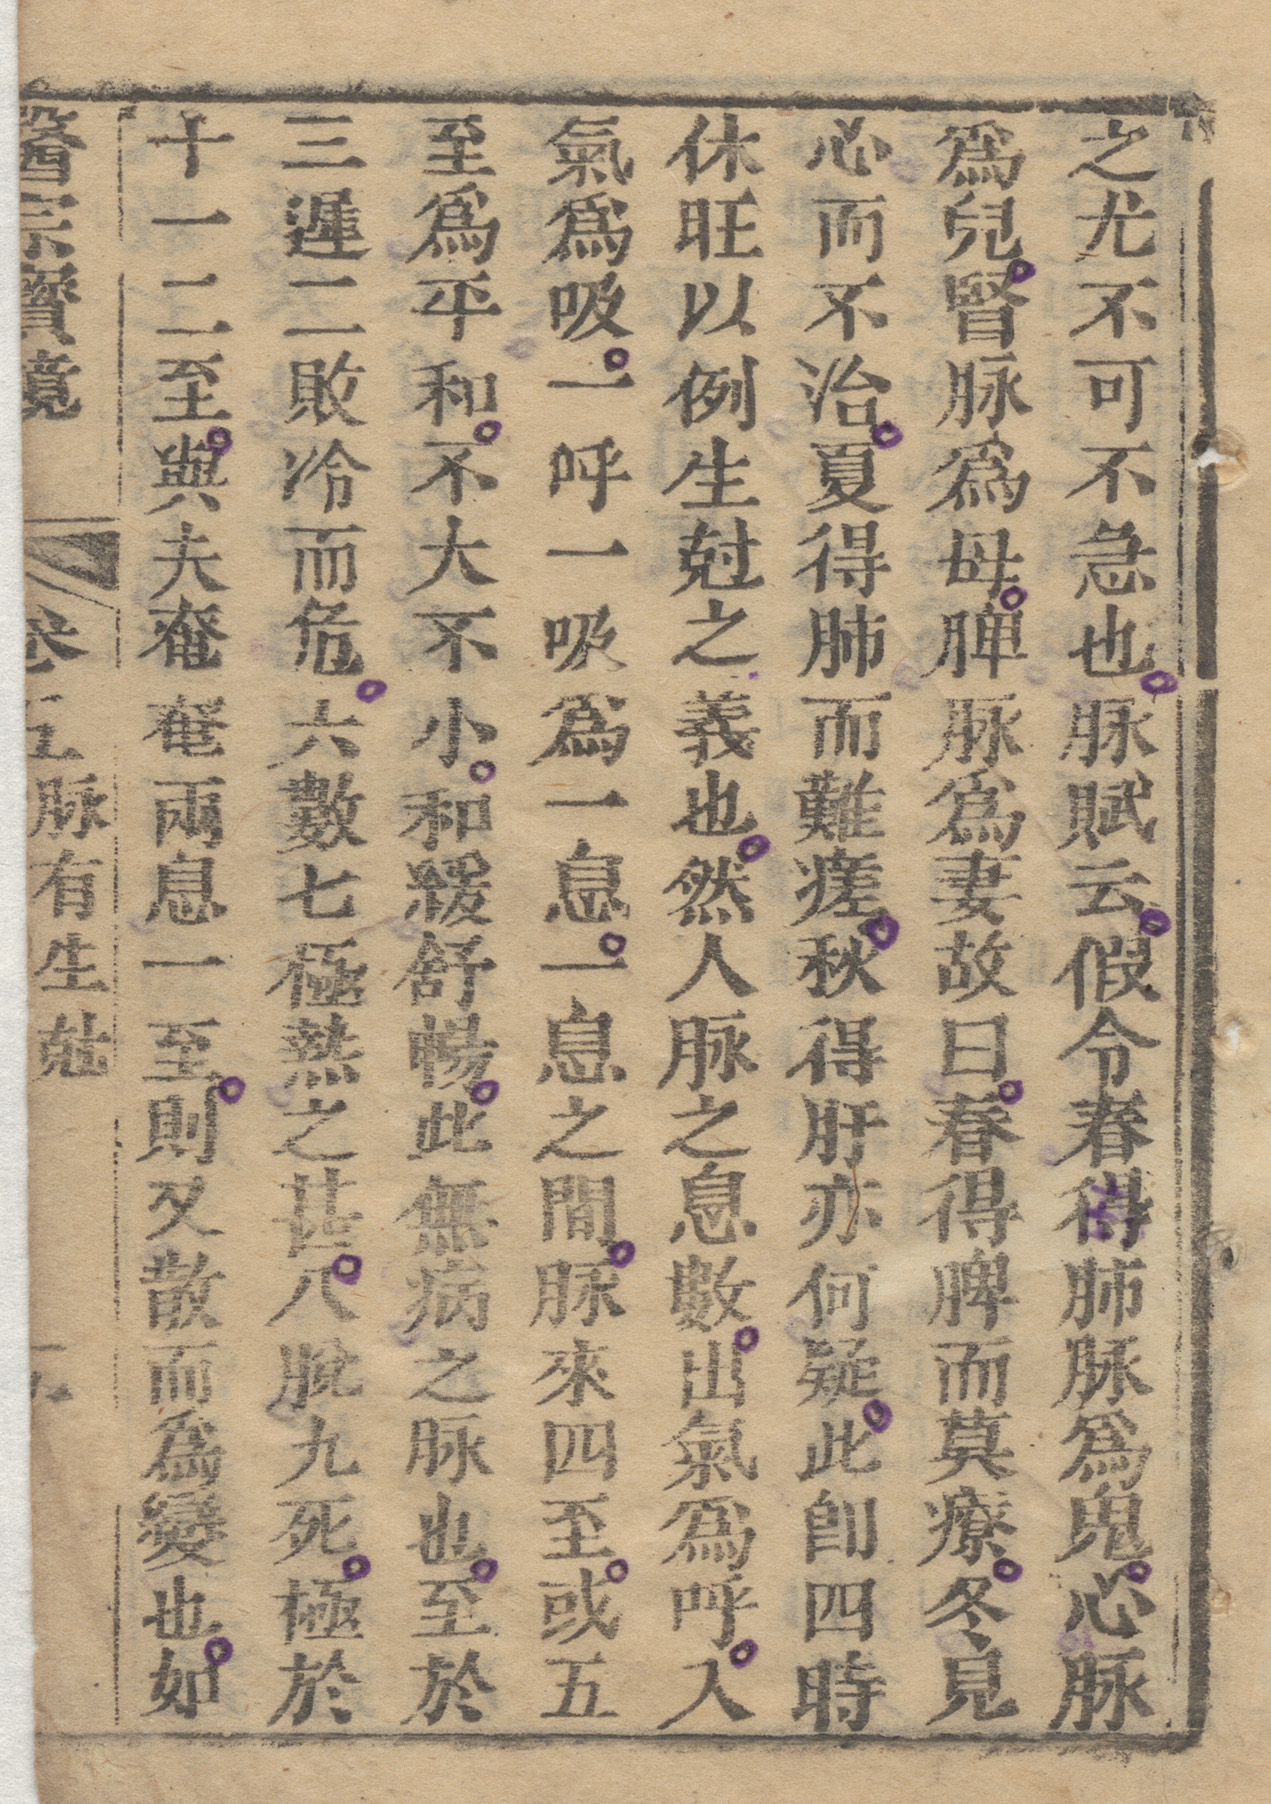 之尤不可不急也。脉賦云。假令春得肺脉爲鬼。心脉
爲兒。腎脉爲母。脾脉爲妻故曰。春得脾而莫療。冬見
心而不治。夏得肺而難瘥。秋得肝亦何疑。此卽四時
休旺以例生尅之義也。然人脉之息數。出氣爲呼。入
氣爲吸。一呼一吸爲一息。一息之間。脉來四至。或五
至爲平和。不大不小。和緩舒暢。此無病之脉也。至於
三遲二敗冷而危。六數七極熱之甚。八脫九死。極於
十一二至。與夫奄奄兩息一至。則又散而爲變也。如
醫宗寶鏡 卷五脉有生尅